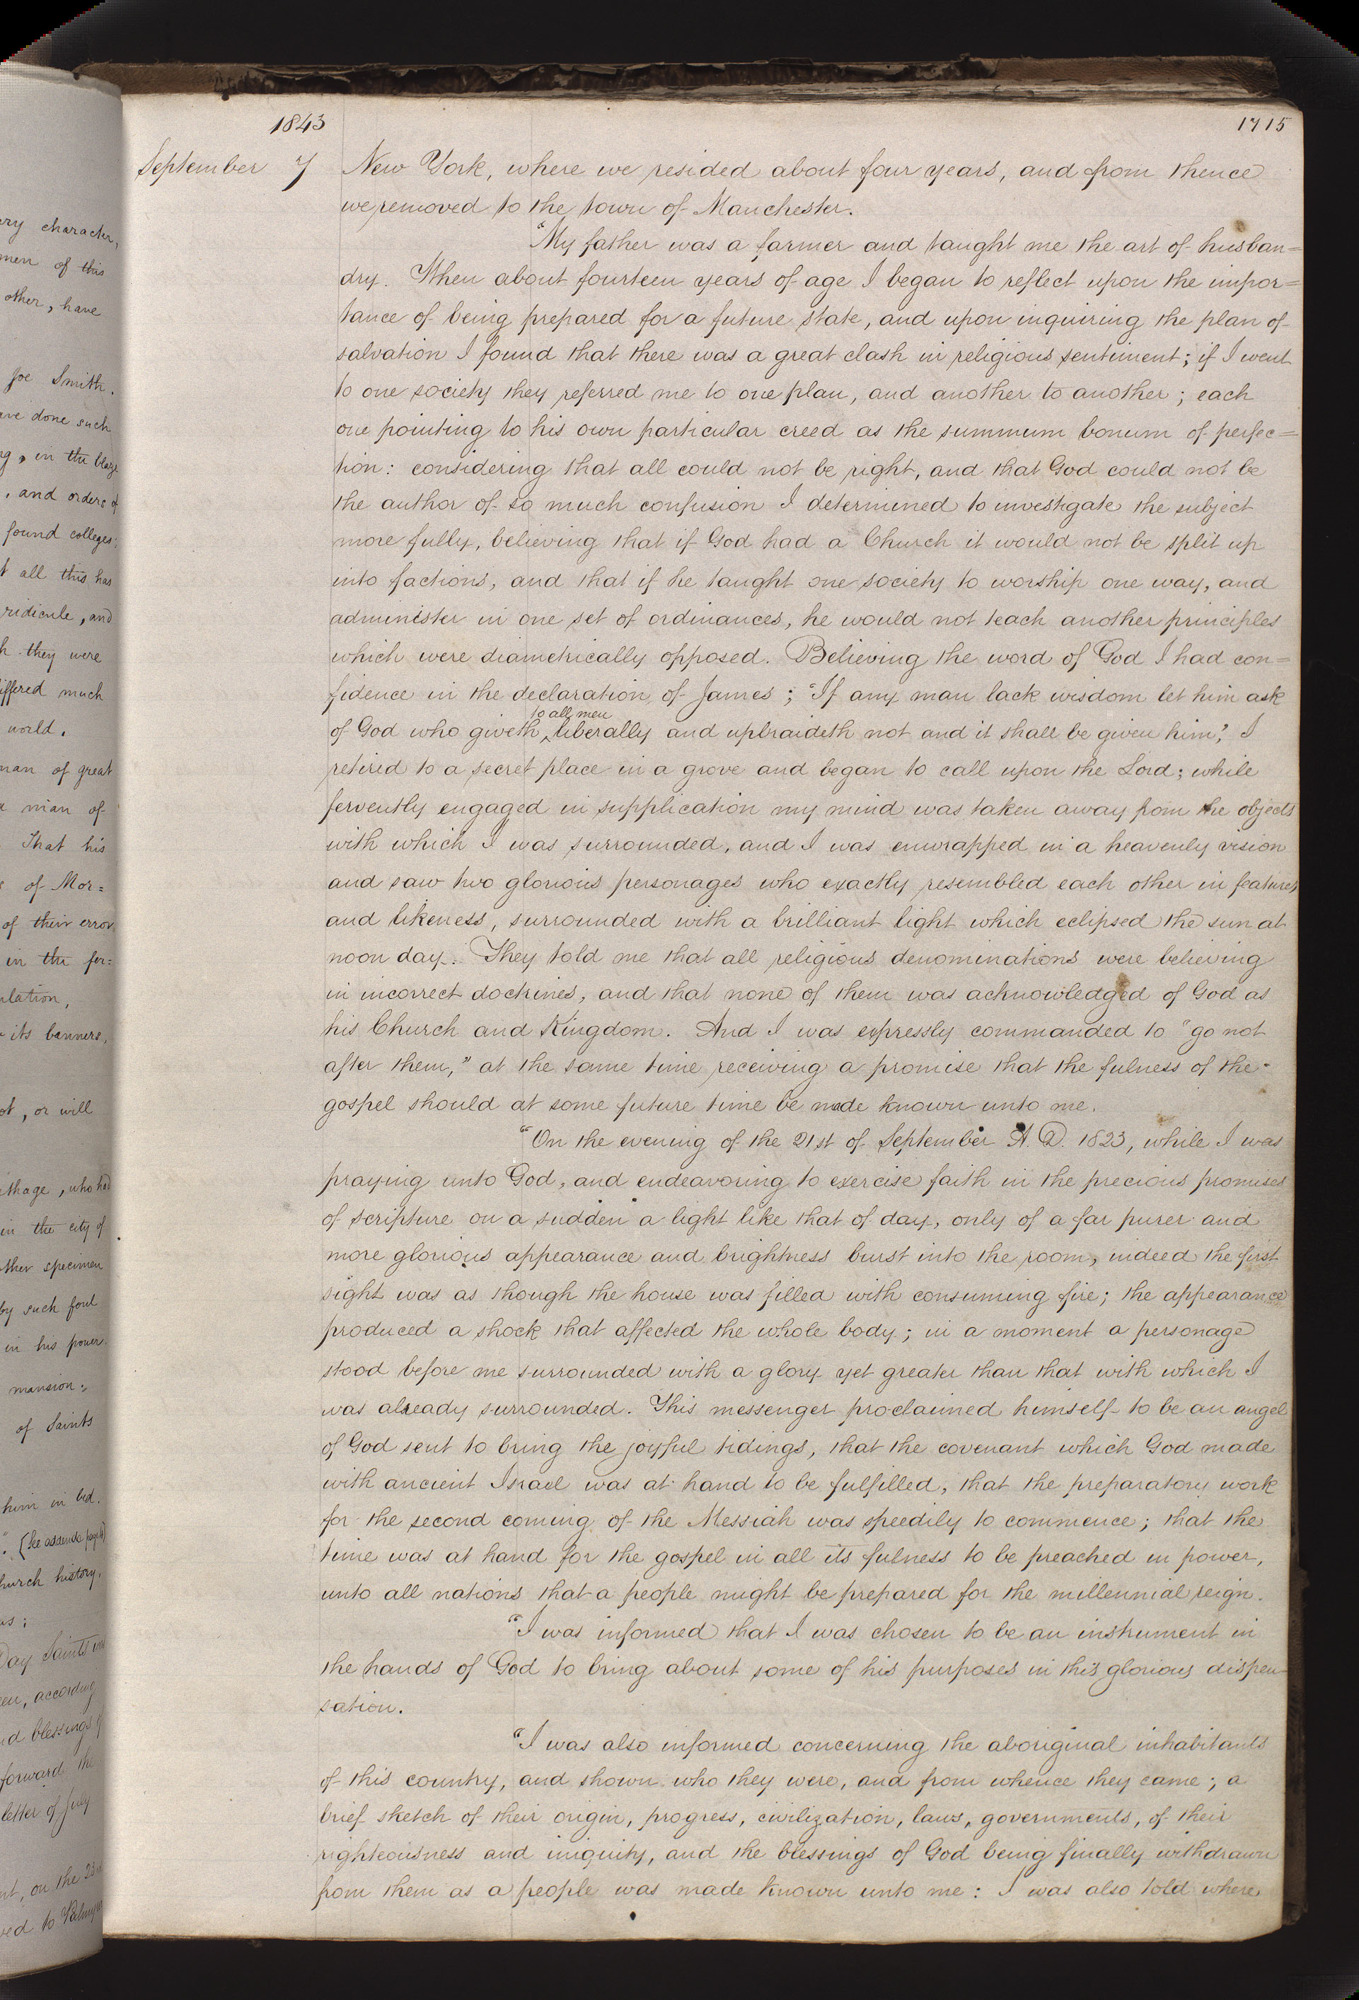 1843
1715
September 7 New York, where we resided about four years, and from thence
we removed to the town of Manchester.
"My father was a farmer and taught me the art of husban=
dry. When about fourteen years of age I began to reflect upon the impor=
tance of being prepared for a future state, and upon inquiring the plan of
salvation I found that there was a great clash in religious sentiment; if I went
to one society they referred me to one plan, and another to another; each
one pointing to his own particular creed as the summum bonum of perfec=
tion: considering that all could not be right, and that God could not be
the author of so much confusion I determined to investigate the subject
more fully, believing that if God had a Church it would not be split up
into factions, and that if he taught one society to worship one way, and
administer in one set of ordinances, he would not teach another principles
which were diametrically opposed. Believing the word of God I had con=
fidence in the declaration of James; "If any man lack wisdom let him ask
to all men
of God who giveth ^ liberally and upbraideth not and it shall be given him", I
retired to a secret place in a grove and began to call upon the Lord; while
fervently engaged in supplication my mind was taken away from the objects
with which I was surrounded, and I was enwrapped in a heavenly vision
and saw two glorious personages who exactly resembled each other in features
and likeness, surrounded with a brilliant light which eclipsed the sun at
noon day. They told me that all religious denominations were believing
in incorrect doctrines, and that none of them was acknowledged of God as
his Church and Kingdom. And I was expressly commanded to "go not
after them," at the same time receiving a promise that the fulness of the
gospel should at some future time be made known unto me.
"On the evening of the 21st of September A. D. 1823, while I was
praying unto God, and endeavoring to exercise faith in the precious promises
of scripture on a sudden a light like that of day, only of a far purer and
more glorious appearance and brightness burst into the room, indeed the first
sight was as though the house was filled with consuming fire; the appearance
produced a shock that affected the whole body; in a moment a personage
stood before me surrounded with a glory yet greater than that with which I
was already surrounded. This messenger proclaimed himself to be an angel
of God sent to bring the joyful tidings, that the covenant which God made
with ancient Israel was at hand to be fulfilled, that the preparatory work
for the second coming of the Messiah was speedily to commence; that the
time was at hand for the gospel in all its fulness to be preached in power,
unto all nations that a people might be prepared for the millennial reign.
"I was informed that I was chosen to be an instrument in
the hands of God to bring about some of his purposes in this glorious dispen
sation.
"I was also informed concerning the aboriginal inhabitants
of this country, and shown who they were, and from whence they came; a
brief sketch of their origin, progress, civilization, laws, governments, of their
righteousness and iniquity, and the blessings of God being finally withdrawn
from them as a people was made known unto me: I was also told where
character,
men of this
other, have
Joe Smith.
have done such
in the blaze
and orders of
found colleges;
all this has
ridicule, and
they were
differed much
world.
man of great
man of
That his
of Mor=
of their error
in the for=
its banners,
or will
who had
in the city of
other specimen
by such foul
in his power.
mansion;
of Saints
him in bed.
church history,
Day Saints
according
blessings of
forward the
letter of July
on the 23
to Palmyra